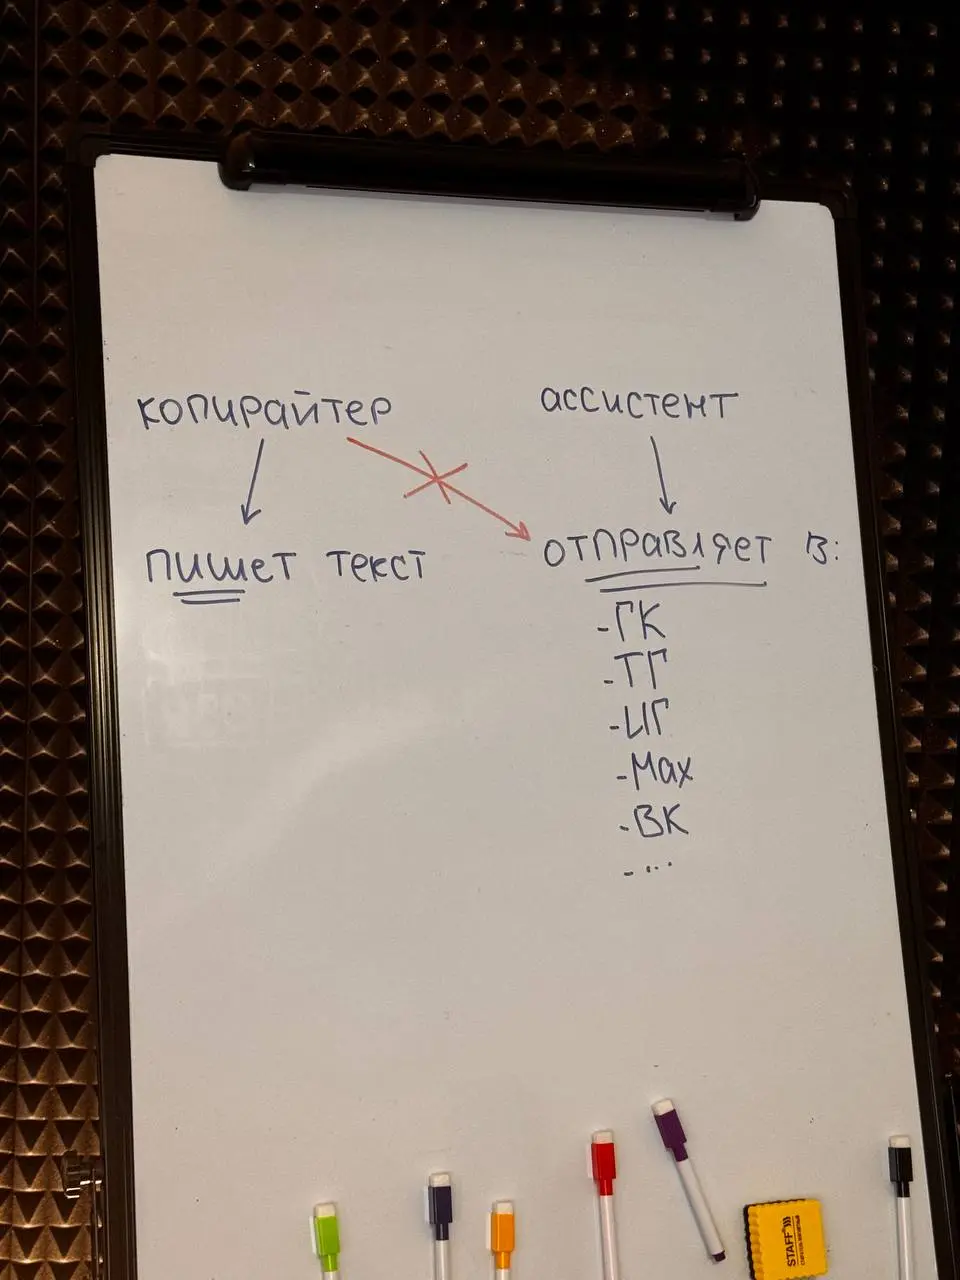 копирайтер
ассистент
пишет текст
отправляет в:
-ГК
-ТГ
-ИГ
-Мах
-ВК
-...
STAFF